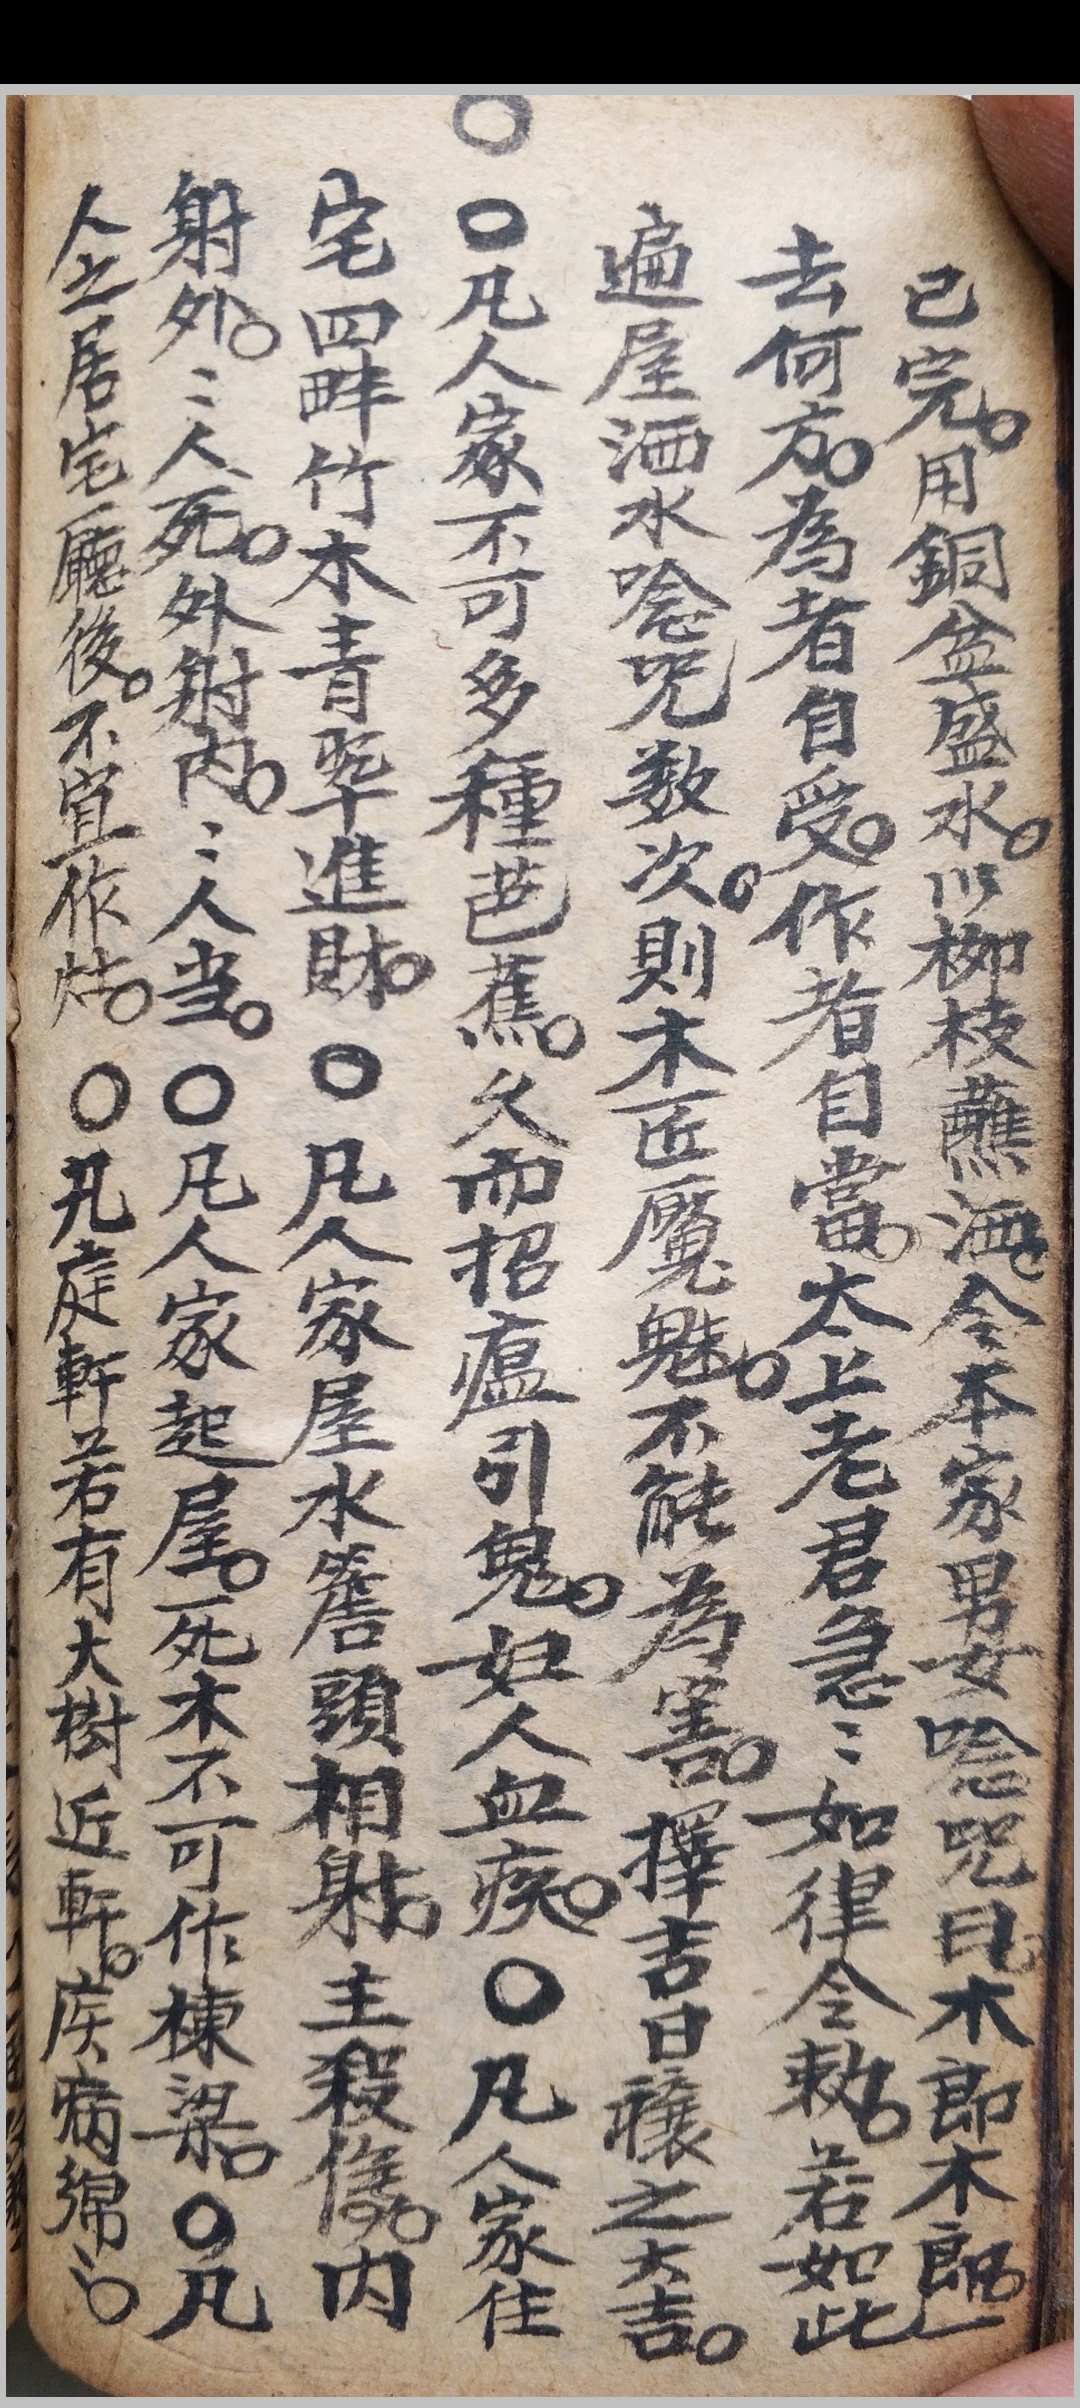 已完。用銅盆盛水。以柳枝蘸洒。令本家男女唸咒曰。木郎木郎。一
去何方。為者自受。作者自當。太上老君急〻如律令敕。若如此
遍屋洒水唸咒数次。則木匠魘魅。不能為害。擇吉日禳之大吉。
○凡人家不可多種芭蕉。久而招瘟引鬼。妇人血疾。○凡人家住
宅四畔竹木青翠進財。○凡人家屋水簷頭相射。主殺傷。内
射外。〻人死。外射内。〻人当。○凡人家起屋。死木不可作棟梁。○凡
人之居宅廳後。不宜作灶。○凡庭軒若有大樹近軒。疾病綿〻。